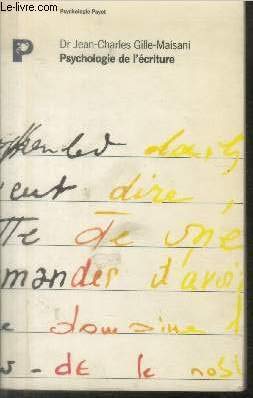 Le-livre.com
Psychologie Payot
P
Dr Jean-Charles Gille-Maisani
Psychologie de l'écriture
dire,
de une
mander d'avoir
e domaine
s - de le nobl